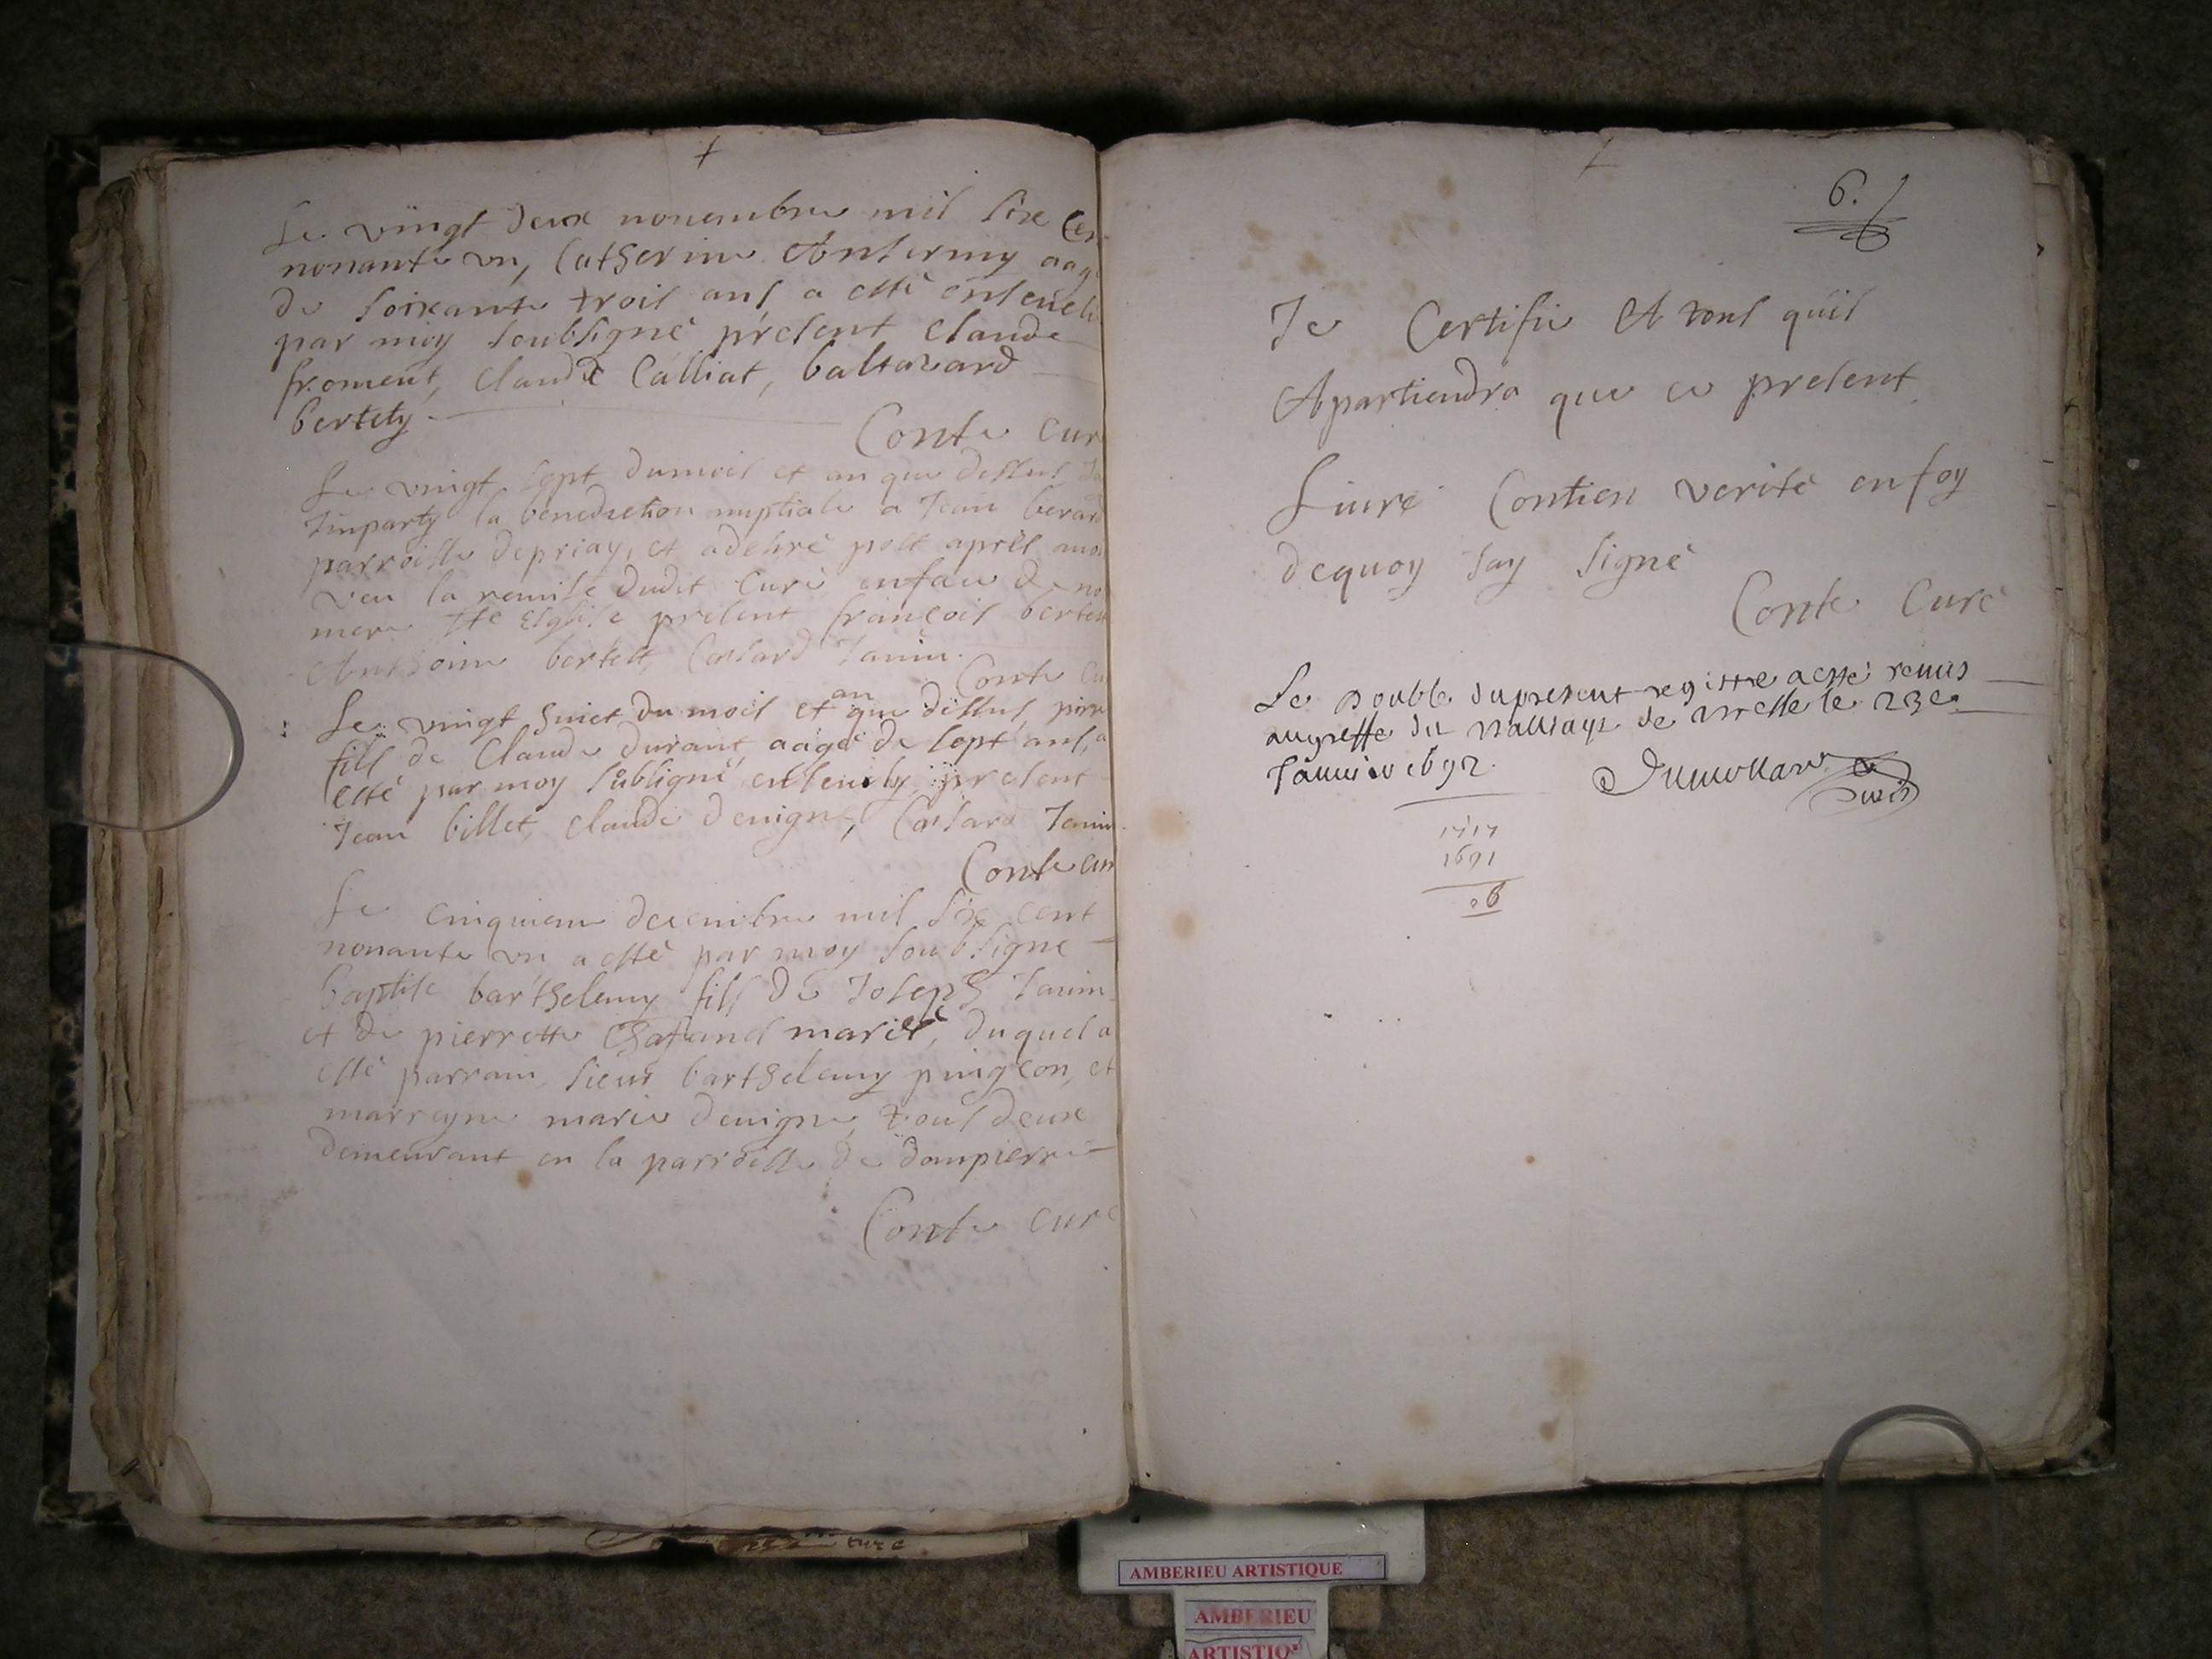 Le vingt deux novembre mil six cen
nonante un, Catherine Antermy aag
de soixante trois ans a esté ensevely
par moy soubsigné présent Claude
froment, Claude Calliat, baltazard
bertety
Conte cur
Le vingt sept dumois et an que dessus
Jinparty la benediction nuptiale a Jean berard
parroisse depriay, et
veu la remise dudit Curé enface de no
mere Ste Esglise présent françois bertet
Anthoine bertet, Janin.
Conte Cu
Le vingt huict du mois et an que dessus,
fils de Claude durant, aagé de sept ans, a
esté par moy subsigné ensevely, present
Jean billet, claude devigne, Janin
Conte cur
Le cinquieme decembre mil six cent
nonante un a esté par moy soubsigne
baptise barthelemy fils de Joseph Janin
et de pierrette mariés, duquel a
esté parrain sieur barthelemy pingeon, et
marreyne marie devigne, tous deux
demeurant en la parroisse de dompierre
Conte curé
6.
Je Certifie A tous quil
Apartiendra que ce present
Livre Contien verité enfoy
dequoy Jay signé
Conte Curé
Le Double dupresent registre a esté remis
augreffe du de le 23e
Janvier 1692.
1717
1691
26
curé
AMBERIEU ARTISTIQUE
AMBERIEU
ARTISTIQ